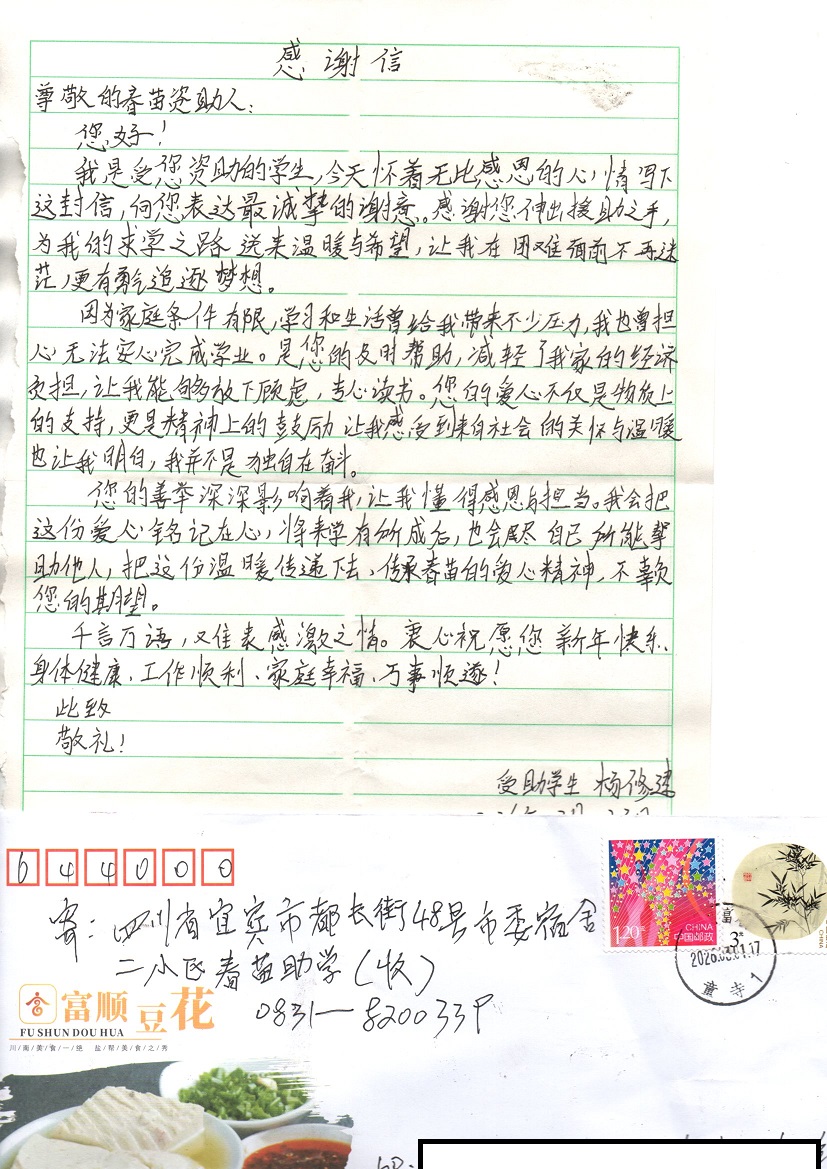 感谢信
尊敬的春苗资助人：
您好！
我是受您资助的学生，今天怀着无比感恩的心情写下
这封信，向您表达最诚挚的谢意。感谢您伸出援助之手，
为我的求学之路送来温暖与希望，让我在困难面前不再迷
茫，更有勇气追逐梦想。
因为家庭条件有限，学习和生活曾给我带来不少压力，我也曾担
心无法安心完成学业。是您的及时帮助，减轻了我家的经济
负担，让我能够放下顾虑，专心读书。您的爱心不仅是物质上
的支持，更是精神上的鼓励 让我感受到来自社会的关怀与温暖
也让我明白，我并不是独自在奋斗。
您的善举深深影响着我，让我懂得感恩与担当。我会把
这份爱心铭记在心，将来学有所成后，也会尽自己所能帮
助他人，把这份温暖传递下去，传承春苗的爱心精神，不辜负
您的期望。
千言万语，又佳表感激之情。衷心祝愿您新年快乐、
身体健康、工作顺利、家庭幸福、万事顺遂！
此致
敬礼！
受助学生 杨修
644000
寄：四川省宜宾市都长街48号市委宿舍
二小区春苗助学（收）
0831-8200339
1.20元
CHINA
中国邮政
富
3元
2026.03.01.17
童寺1
CHINA
富顺豆花
FU SHUN DOU HUA
川/南/美/食/一/绝 盐/帮/美/食/之/秀